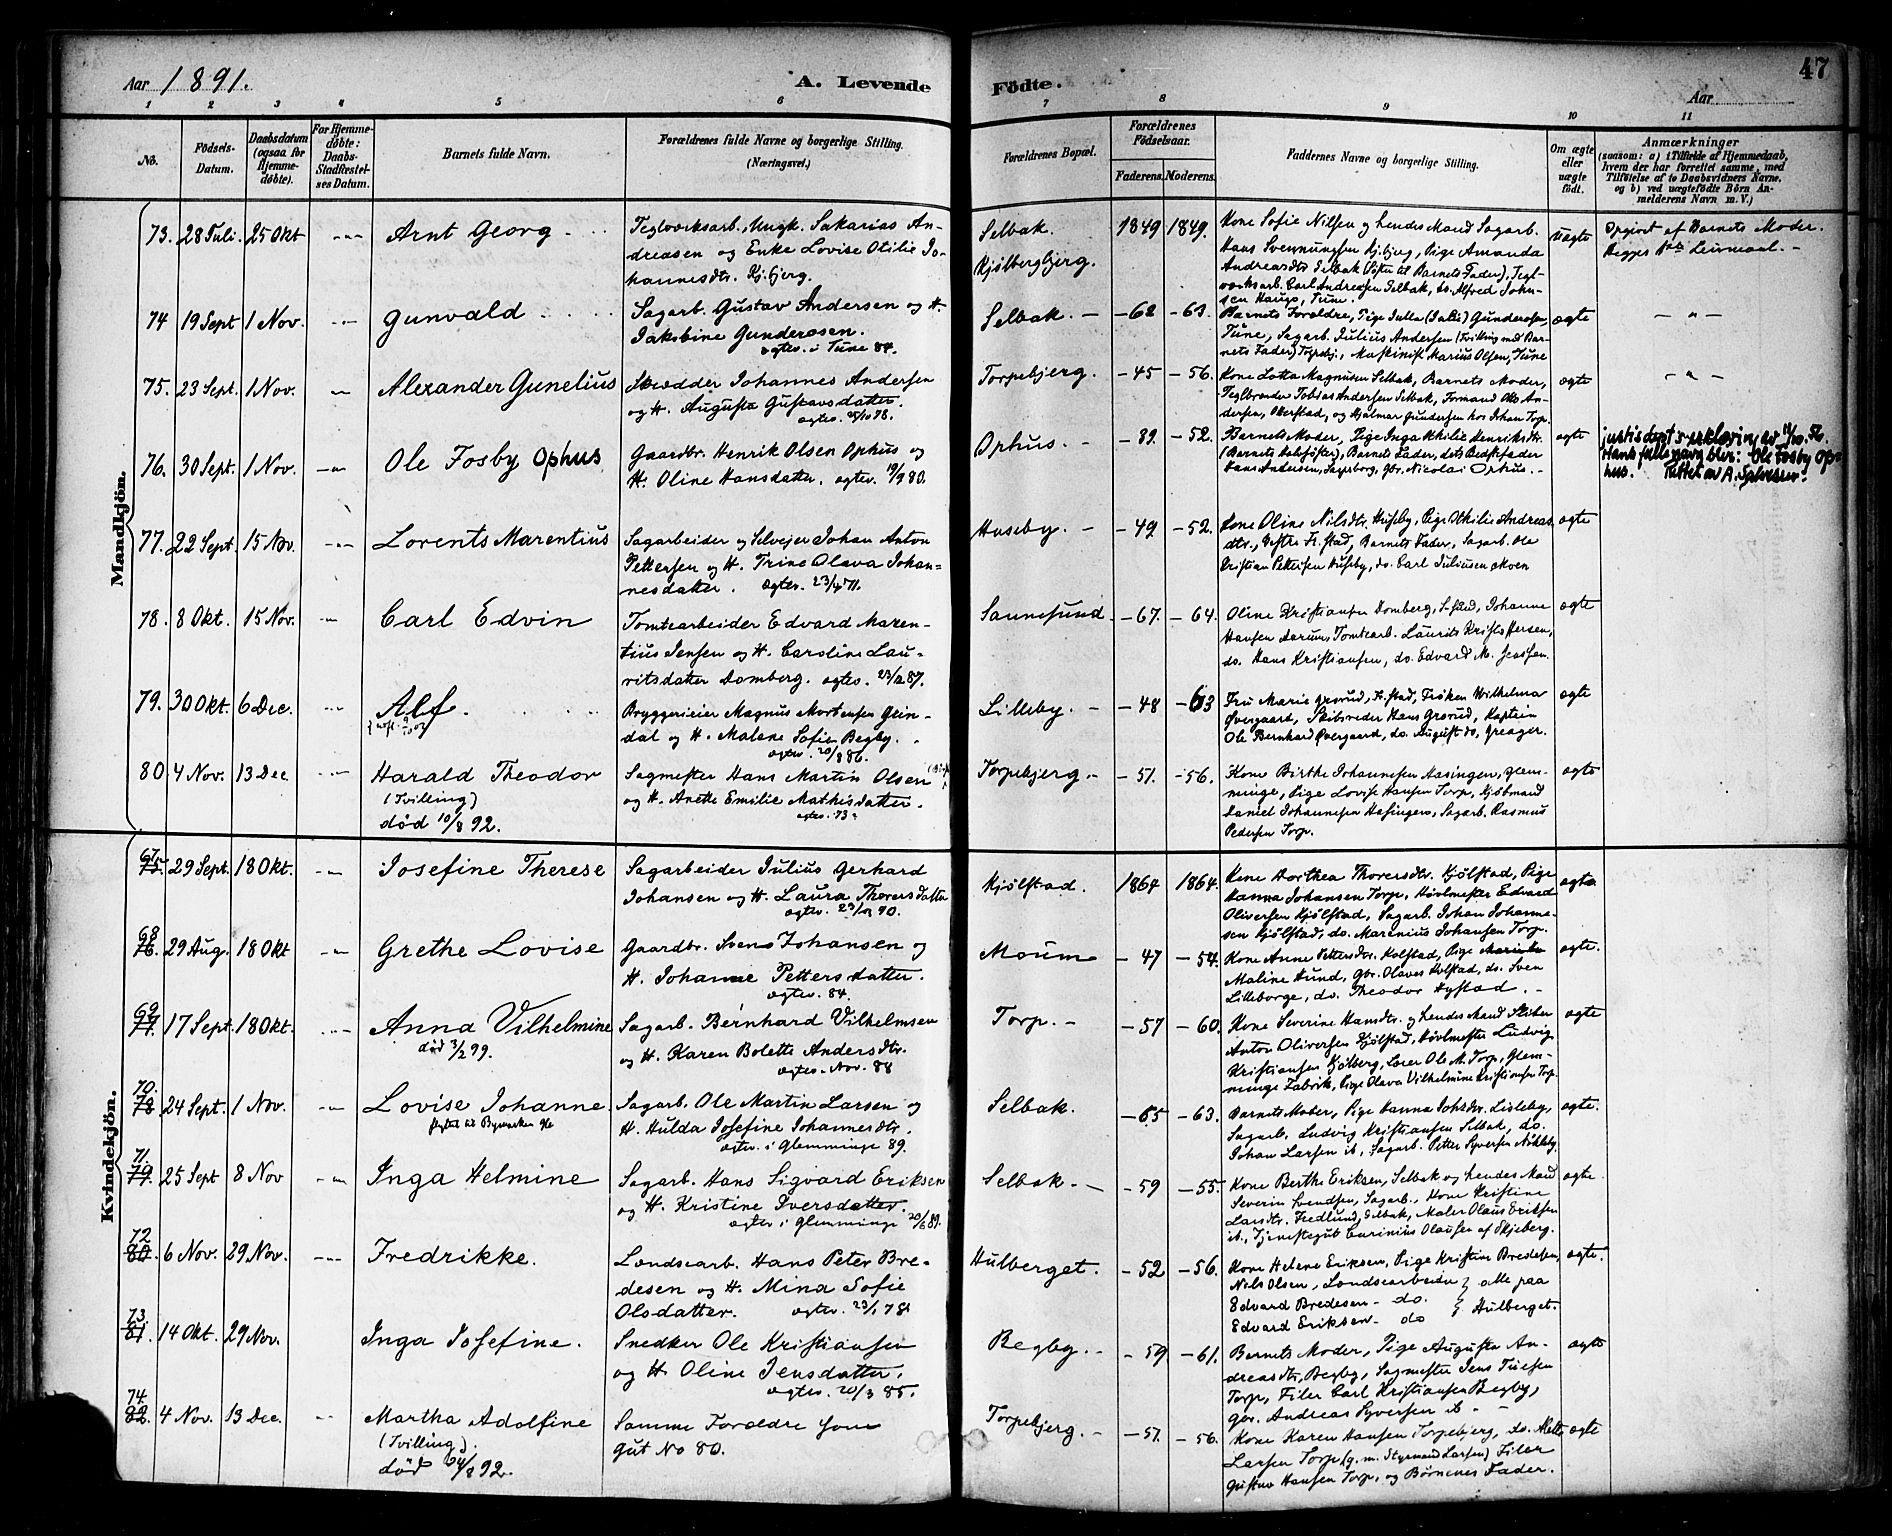 Aar 1891.
A. Levende
Födte.
47
Aar
1 2 3 4 5 6 7 8 9 10 11
No.
Födsels-Datum.
Daabsdatum (ogsaa for Hjemme-döbte).
For Hjemme-döbte: Daabs-Stadfæstel-ses Datum.
Barnets fulde Navn.
Forældrenes fulde Navne og borgerlige Stilling. (Næringsvei.)
Forældrenes Bopæl.
Forældrenes Födselsaar.
Faderens. Moderens.
Faddernes Navne og borgerlige Stilling.
Om ægte eller uægte födt.
Anmærkninger
(saasom: a) i Tilfælde af Hjemmedaab, hvem der har forrettet samme, med Tilföielse af to Daabsvidners Navne, og b) ved uægtefödte Börn An-melderens Navn m. V.)
Mandkjön.
73. 28 Juli. 25 Okt Arnt Georg
Teglværksarb., Ungk. Sakarias An-
dreasen og Enke Lovise Otilie Jo-
hannesdtr. Kj.bjerg.
Selbak.
Kjølbergbjerg.
1849 1849.
Kone Sofie Nilsen og hendes Mand Sagarb.
Hans Svennungsen Kj.bjerg, Pige Amanda
Andreasdtr Selbak (Søster til Barnets Fader), Tegl-
værksarb. Carl Andreasen Selbak, do. Alfred John-
sen Hauge, Tune.
Uægte
Opgivet af Barnets Moder.
Begges 1ste Leiermaal. -
74 19 Sept 1 Nov. Gunvald
Sagarb. Gustav Andersen og H.
Jakobine Gundersen.
ægtev. i Tune 84.
Selbak. - - 62 - 63.
Barnets Forældre, Pige Julla (Julie) Gundersen,
Tune, Sagarb. Julius Andersen (Tvilling med Bar-
nets Fader) Torpebj., Maskinist Marius Olsen, Tune
ægte - " -
75. 23 Sept. 1 Nov. Alexander Gunelius
Skrædder Johannes Andersen
og H. Augusta Gustavsdatter.
ægtev. 25/10 78.
Torpebjerg. - 45 - 56.
Kone Lotta Magnusen Selbak, Barnets Moder,
Teglbrænder Tobias Andersen Selbak, Formand Ole An-
dersen, Oberstad, og Hjalmar Gundersen hos Johan Torp.
ægte - " -
76. 30 Sept. 1 Nov. Ole Fosby Ophus
Gaardbr. Henrik Olsen Ophus og
H. Oline Hansdatter. ægtev. 19/9 80.
Ophus. - - 39. - 52.
Barnets Moder, Pige Inga Othilie Henriksdtr.
(Barnets Halvsøster), Barnets Fader, dets Bedstefader
Hans Andersen, Sarpsborg, gbr. Nicolai Ophus. -
ægte
Justisdept's erklæring av 11/10 56.
Hans fulle navn blir: Ole Fosby Op=
hus. Rettet av A.
77. 22 Sept. 15 Nov. Lorents Marentius
Sagarbeider og Selveier Johan Anton
Pettersen og H. Trine Olava Johan-
nesdatter. ægtev. 23/4 71.
Huseby. - - 49 - 52.
Kone Oline Nilsdtr. Huseby, Pige Othilie Andreas-
dtr., Vestre Fr.stad, Barnets Fader, Sagarb. Ole
Kristian Pettersen Huseby, do. Carl Juliussen
ægte
78. 8 Okt. 15 Nov. Carl Edvin
Tomtearbeider Edvard Maren-
tius Jensen og H. Caroline Lau-
ritsdatter Domberg. ægtev. 87.
Sannesund. - 67. - 64.
Oline Kristiansen Domberg, Johanne
Hansen Borum, Tomtearb. Laurits Kristoffersen,
do. Hans Kristiansen, do. Edvard M. Jensen.
ægte
79. 30 Okt. 6 Dec. Alf.
Bryggerieier Magnus Mortensen Grin-
dal og H. Malene Sofie Begby.
ægtev. 20/8 86.
Lilleby. - - 48 - 63
Fru Marie Grorud, Fr.stad, Frøken Wilhelma
Øvergaard, Skibsreder Hans Grorud, Kaptein
Ole Bernhard Øvergaard, do. August do, Greager.
ægte
80 4 Nov. 13 Dec. Harald Theodor
(Tvilling)
død 10/8 92.
Sagmester Hans Martin Olsen
og H. Anette Emilie Mathisdatter.
ægtev. 73.
Torpebjerg. - - 51. - 56.
Kone Birthe Johannesen Aasingen, Glem-
minge, Pige Lovise Hansen Torp, Kjøbmand
Daniel Johannesen Hasingen, Sagarb. Rasmus
Pedersen Torp.
ægte
Kvindekjön.
67. 75. 29 Sept. 18 Okt. Josefine Therese
Sagarbeider Julius Gerhard
Johansen og H. Laura Thoresdatter
ægtev. 90.
Kjølstad. 1864 1864.
Kone Dorthea Thoresdtr. Kjølstad, Pige
Hanna Johansen Torp, Høvlmester Edvard
Oliversen Kjølstad, Sagarb. Johan Johanne-
sen Kjølstad, do. Marenius Johansen Torp.
ægte.
68 76. 29 Aug. 18 Okt Grethe Lovise
Gaardbr. Svend Johansen og
H. Johanne Pettersdatter.
ægtev. 84.
Moum - 47 - 54.
Kone Anne Pettersdtr. Holstad, Pige
Maline Hund, gbr. Olaves Holstad, do. Sven
Lilleborge, do. Theodor Hystad. -
ægte.
69 77. 17 Sept. 18 Okt. Anna Vilhelmine
død 3/2 99.
Sagarb. Bernhard Vilhelmsen
og H. Karen Bolette Andersdtr.
ægtev. Nov. 88
Torp. - - 57 - 60.
Kone Severine Hansdtr. og hendes Mand
Anton Oliversen Kjølstad, Høvlmester Ludvig
Kristiansen Kjølberg, Leier Ole M. Torp, Glem-
minge Fabrik, Pige Olava Vilhelmine Kristiansen Torp
ægte
70. 78 24 Sept. 1 Nov. Lovise Johanne.
flyttet til Bymarken
Sagarb. Ole Martin Larsen og
H. Hulda Josefine Johannesdtr.
ægtev. i Glemminge 89.
Selbak. - 65 - 63.
Barnets Moder, Pige Hanna Johsdtr. Lisleby,
Sagarb. Ludvig Kristiansen Selbak, do.
Johan Larsen ib, Sagarb. Petter Syversen Nikleby
ægte.
71. 79. 25 Sept 8 Nov Inga Helmine
Sagarb. Hans Sigvard Eriksen
og H. Kristine Iversdatter.
ægtev i Glemminge 20/6 89.
Selbak. - - 59 - 55.
Kone Berthe Eriksen, Selbak og hendes Mand
Severin Svendsen, Sagarb., Kone Kristine
Larsdtr. Fredlund, Selbak, Maler Olaus Eriksen
ib., Tjenestegut Carinius Olausen af Skjeberg.
ægte.
72 80. 6 Nov. 29 Nov. Fredrikke.
Londsearb. Hans Peter Bre-
desen og H. Mina Sofie
Olsdatter. ægtev. 78
Hulberget. - 52 - 56.
Kone Helene Eriksen, Pige Kristine Bredesen,
Nils Olsen, Londsearbeider } alle paa
Edvard Bredesen - do. } Hulberget.
Edvard Eriksen - do
ægte.
73. 81. 14 Okt. 29 Nov. Inga Josefine.
Snedker Ole Kristiansen
og H. Oline Jensdatter.
ægtev. 20/3 85.
Begby. - - 59 - 61.
Barnets Moder, Pige Augusta An-
dreasdtr. Begby, Sagmester Jens Tuesen
Torp, Filer Carl Kristiansen Begby,
gbr. Andreas Syversen ib -
ægte
74 82. 4 Nov. 13 Dec. Martha Adolfine
(Tvilling).
død 92.
Samme Forældre som
Gut No 80.
Torpebjerg. - - 51. - 56.
Kone Karen Hansen Torpebjerg, do. Mette
Larsen Torp (g. m. Styrmand Larsen) Filer
Gustav Hansen Torp, og Børnenes Fader.
ægte